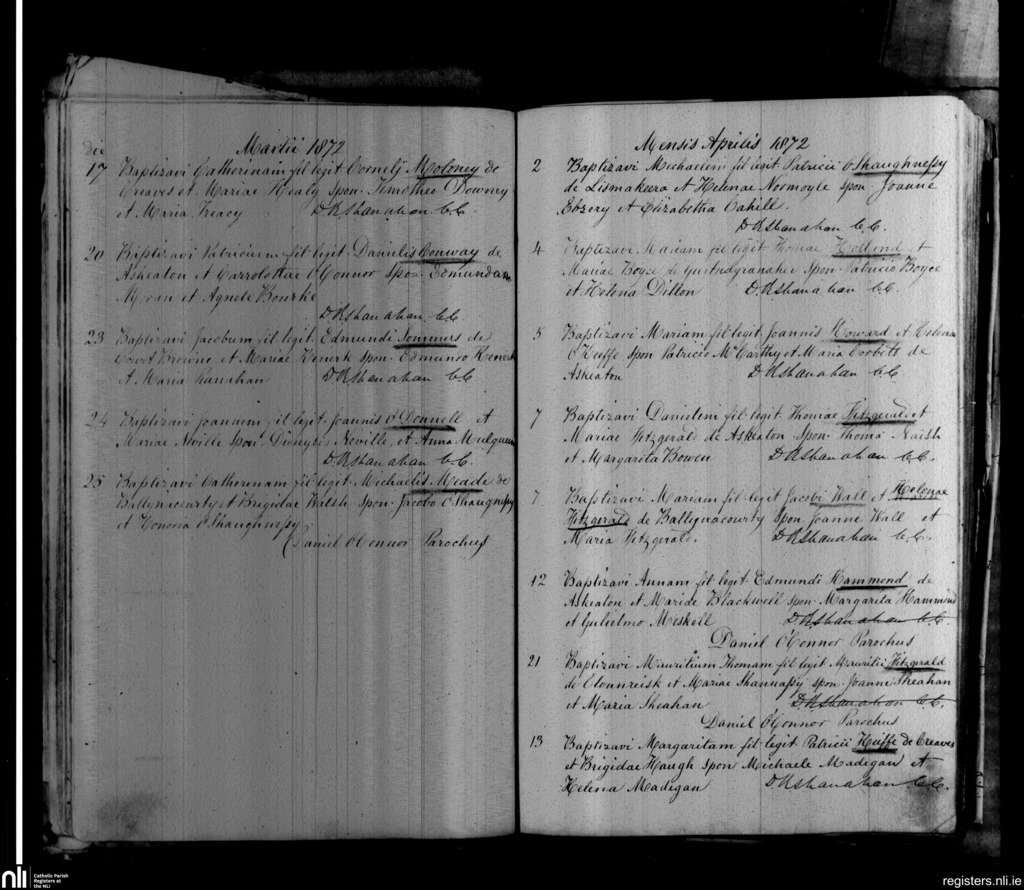 Martii 1872
die
17 Baptizavi Catherinam fil legit Cornelj Moloney de
Creaves et Mariae Healy spon. Timotheo Downey
et Maria Treacy D K Shanahan C.C.
20 Baptizavi Patricium fil legit. Danielis Conway de
Askeaton et Carrolottae O'Connor spon.
et Agnete Bourke
D K Shanahan C.C.
23 Baptizavi Jacobum fil legit. Edmundi Sommers de
Court Browne et Mariae spon. Edmundo
et Maria Ranahan D K Shanahan C.C
24 Baptizavi Joannem fil legit. Joannis O'Donnell et
Mariae Neville spon. Neville et Anna
D K Shanahan C.C.
25 Baptizavi Catherinam fil legit. Michaelis Meade de
Ballynacourty et Brigidae Walsh spon. Jacobo O'Shaughnessy
et Honora O'Shaughnessy
Daniel O'Connor Parochus
Mensis Aprilis 1872
2 Baptizavi Michaelem fil legit Patricii O'Shaughnessy
de Lismakeera et Helenae Normoyle spon Joanne
Ebzery et Elizabetha Cahill.
D K Shanahan C.C.
4 Baptizavi Mariam fil legit Thomae Holland et
Mariae Boyce de spon Patricio Boyce
et Helena Dillon D K Shanahan C.C.
5 Baptizavi Mariam fil legit Joannis Howard et Helenae
O'Keiffe spon Patricio McCarthy et Maria Corbett de
Askeaton D K Shanahan C.C
7 Baptizavi Danielem fil legit Thomae Fitzgerald et
Mariae Fitzgerald de Askeaton spon. Thoma Naish
et Margarita Bowen D K Shanahan C.C.
7 Baptizavi Mariam fil legit Jacobi Wall et Helenae
Fitzgerald de Ballynacourty spon Joanne Wall et
Maria Fitzgerald. D K Shanahan C.C.
12 Baptizavi Annam fil legit Edmundi Hammond de
Askeaton et Mariae Blackwell spon. Margarita Hammond
et Gulielmo Meskell D K Shanahan C.C.
Daniel O'Connor Parochus
21 Baptizavi Mauritium Thomam fil legit Mauritii Fitzgerald
de Clounreisk et Mariae Shaunassy spon. Joanne Sheahan
et Maria Sheahan D K Shanahan C.C.
Daniel O'Connor Parochus
13 Baptizavi Margaritam fil legit Patricii Keiffe de Creaves
et Brigidae Haugh spon Michaele Madigan et
Helena Madigan D K Shanahan C.C.
nli Catholic Parish
Registers at
the NLI
registers.nli.ie